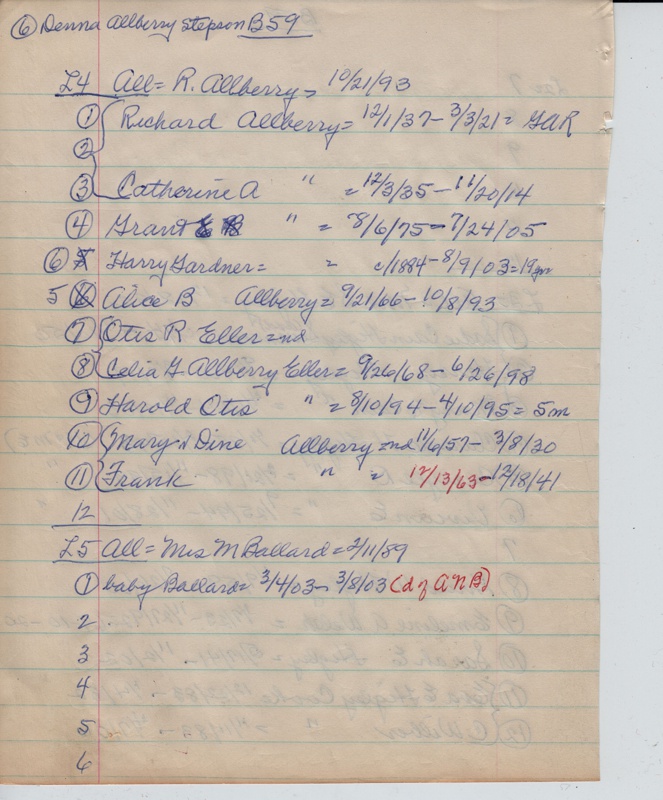 ⑥ Denna Allberry Stepson B59
L4 All = R. Allberry = 10/21/93
① Richard Allberry = 12/1/37 - 3/3/21 = GAR
②
③ Catherine A " = 12/3/35 - 11/20/14
④ Grant " = 8/6/75 - 7/24/05
6 Harry Gardner = = c/1884 - 8/9/03 = 19yr
5 Alice B Allberry = 9/21/66 - 10/8/93
⑦ Otis R Eller = nd
⑧ Celia G Allberry Eller = 9/26/68 - 6/26/98
⑨ Harold Otis " = 8/10/94 - 4/10/95 = 5m
⑩ Mary Dine Allberry = nd 11/6/57 - 3/8/30
⑪ Frank " = 12/13/63 - 12/18/41
12
L5 All = Mrs M Ballard = 2/11/89
① baby Ballard = 3/4/03 - 3/8/03 (d of A & B)
2
3
4
5
6